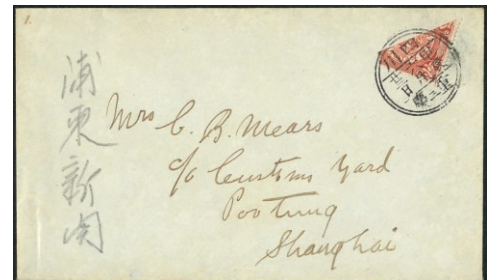 1.
浦東新関
Mrs C. B. Mears
c/o Customs Yard
Pootung
Shanghai